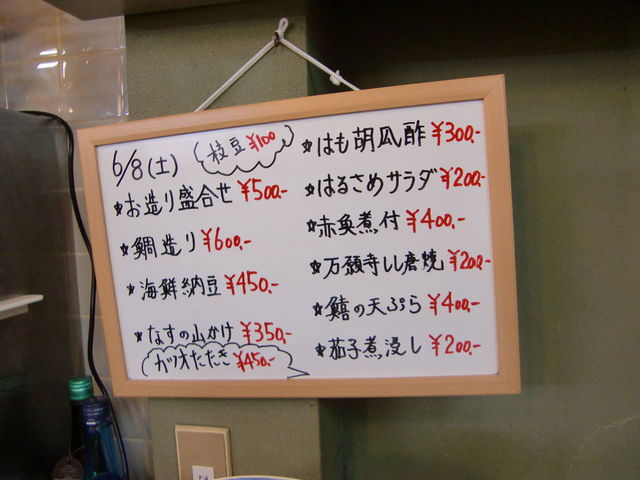 6/8(土)
枝豆 ¥100
お造り盛合せ ¥500-
鯛造り ¥600-
海鮮納豆 ¥450-
なすの山かけ ¥350-
カツオたたき ¥450-
はも胡瓜酢 ¥300-
はるさめサラダ ¥200-
赤魚煮付 ¥400-
万願寺しし唐焼 ¥200-
鱚の天ぷら ¥400-
茄子煮浸し ¥200-